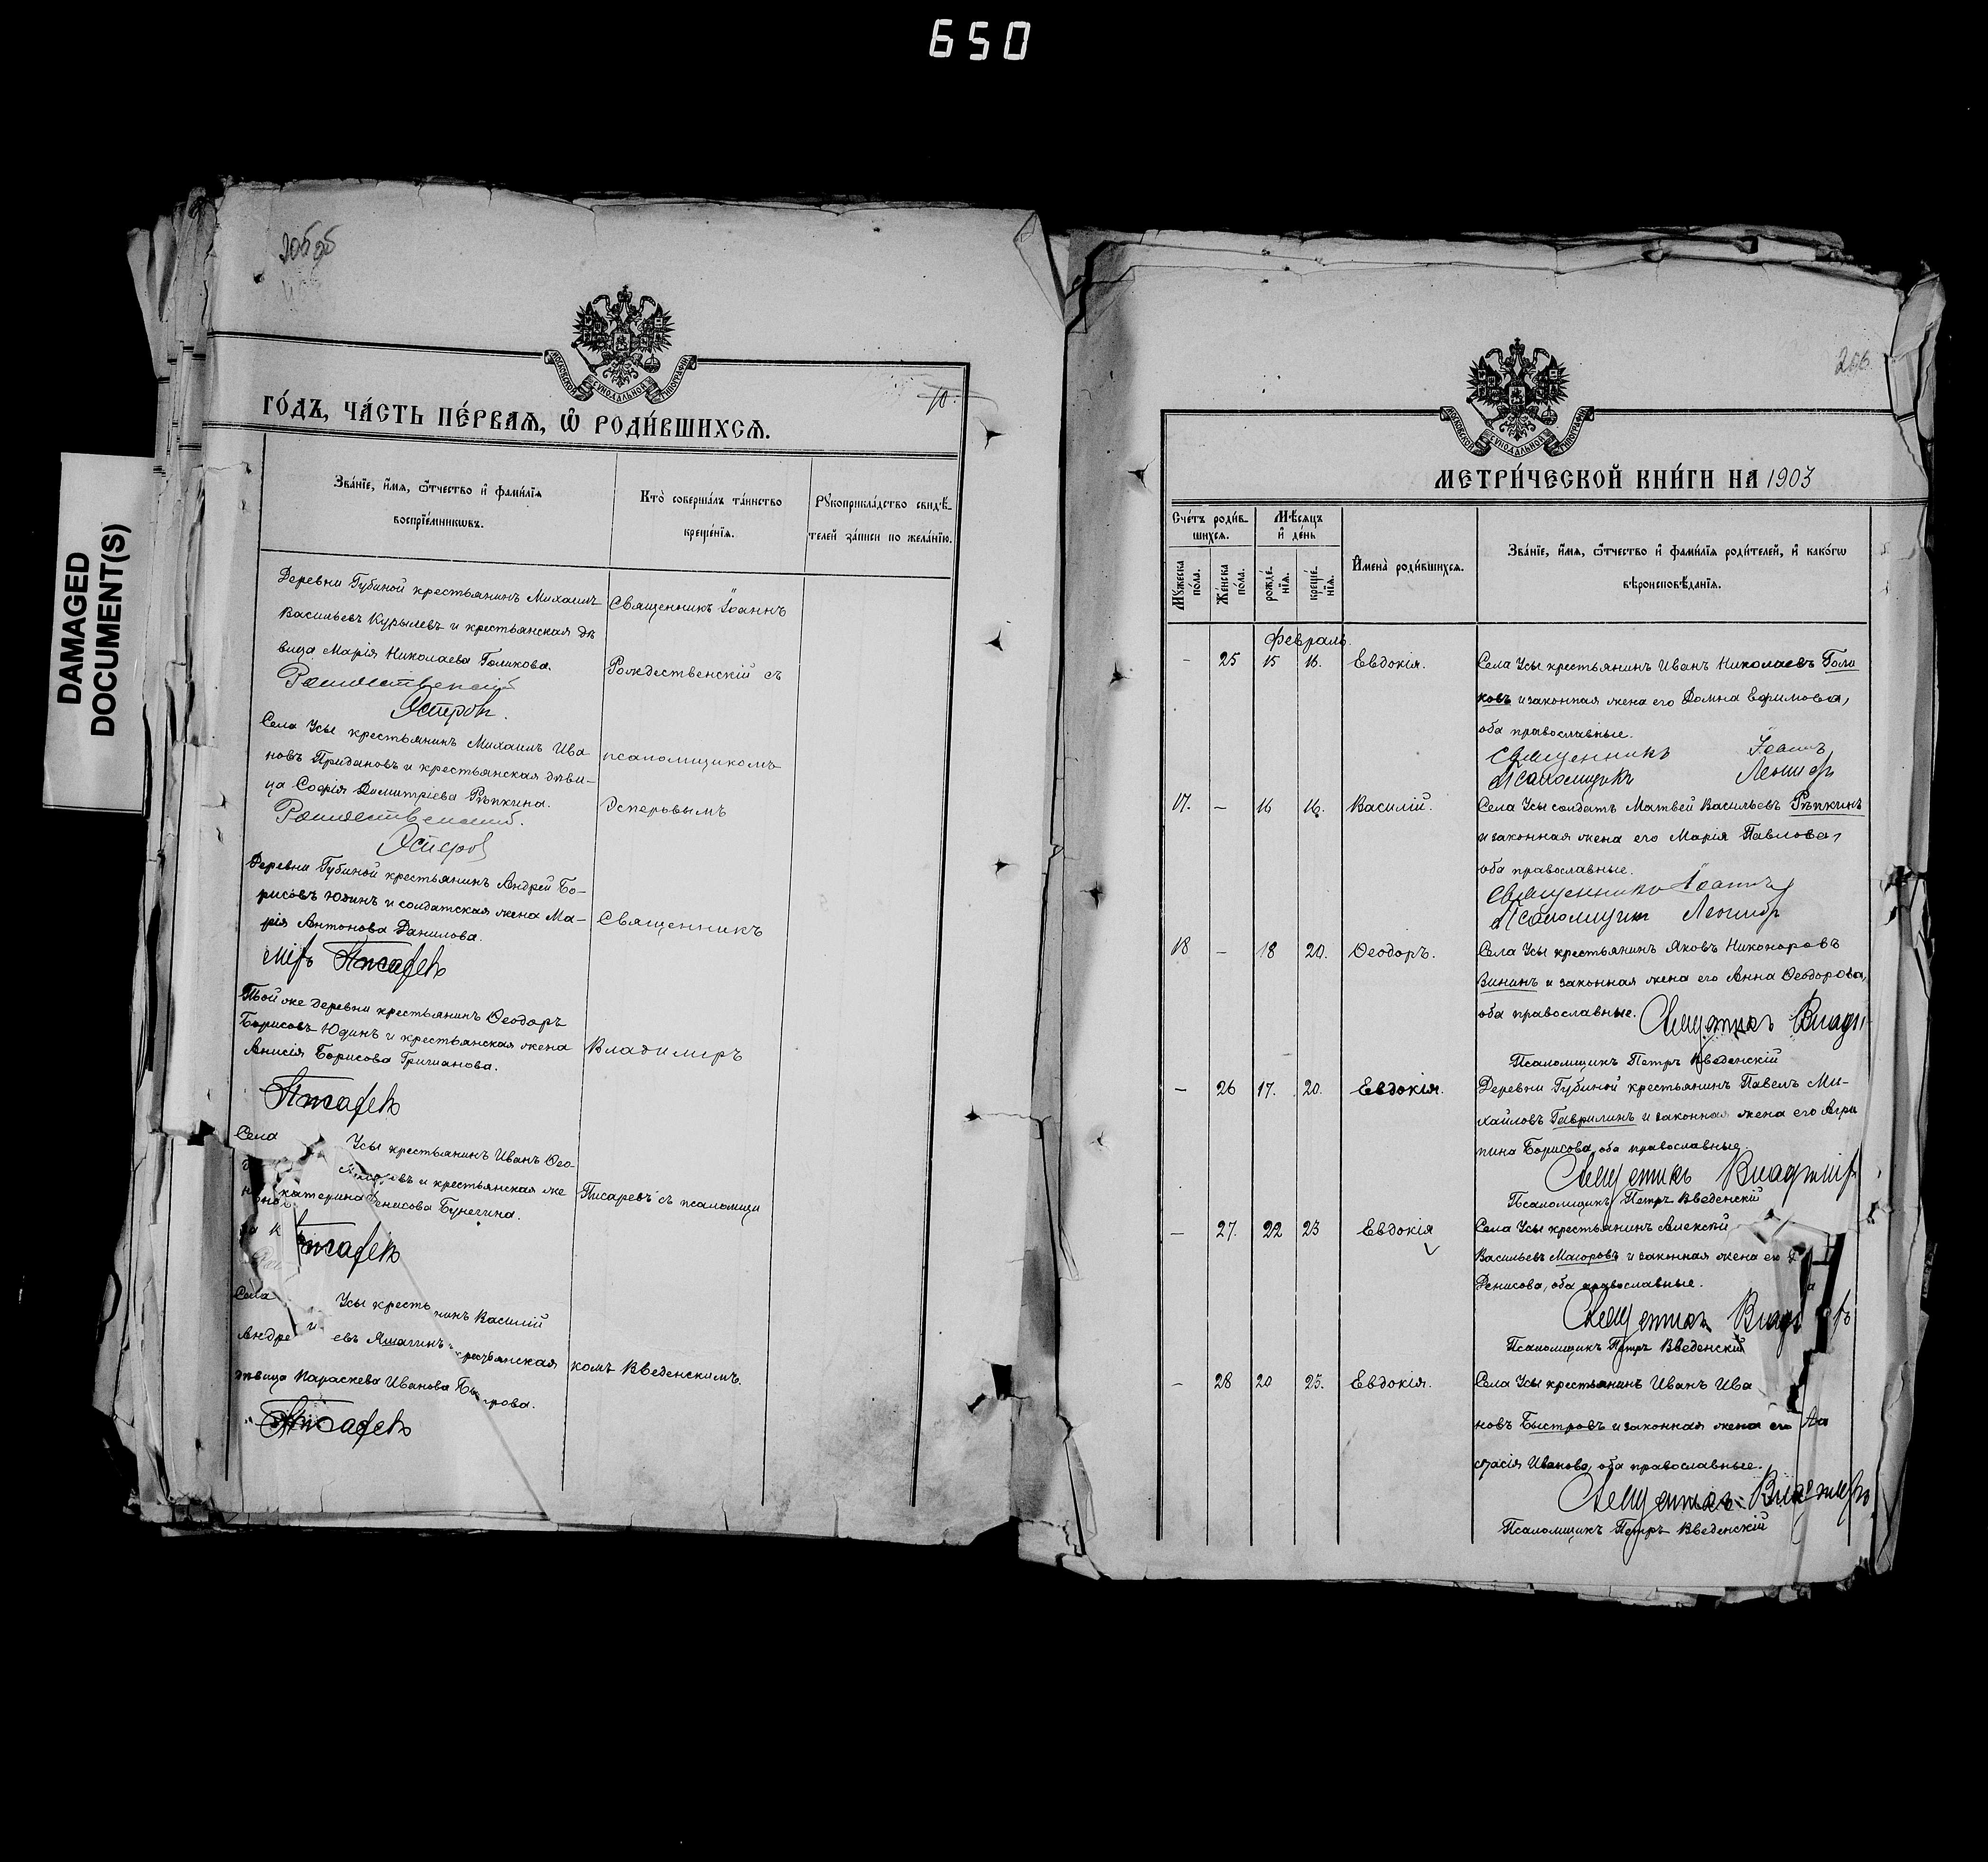 650
DAMAGED
DOCUMENT(S)
МОСКОВСКОЙ СѴНОДАЛЬНОЙ ТИПОГРАФІИ
10.
ГО́ДЪ, ЧА́СТЬ ПЕ́РВАѦ, Ѽ РОДИ́ВШИХСѦ.
Зва́нїе, и́мя, ѻ҆́тчество и҆ фами́лїя
воспрїе́мникѡвъ.
Кто̀ соверша́лъ та́инство
креще́нїя.
Рꙋкоприкла́дство свидѣ́-
телей за́писи по жела́нїю.
Деревни Губиной крестьянинъ Михаилъ
Васильевъ Курылевъ и крестьянская дѣ
вица Марія Николаева Голикова.
Рождественскій
Эсперовъ.
Села Усы крестьянинъ Михаилъ Ива
новъ Придановъ и крестьянская дѣви-
ца Софія Димитріева Рѣпкина.
Рождественскій.
Эсперов
Деревни Губиной крестьянинъ Андрей Бо-
рисовъ Юдинъ и солдатская жена Ма-
рія Антонова Данилова.
міръ Писаревъ
Той же деревни крестьянинъ Ѳеодоръ
Борисовъ Юдинъ и крестьянская жена
Анисія Борисова
Писаревъ
Села Усы крестьянинъ Иванъ Ѳео-
въ и крестьянская же
катерина Денисова
Писаревъ
Села Усы кресть нинъ Василій
Андре евъ Яшагинъ и крестьянская
дѣвица Параскева Иванова Бы трова.
Писаревъ
Священникъ Іоаннъ
Рождественскій съ
псаломщикомъ
Эсперовымъ
Священникъ
Владимиръ
Писаревъ съ псаломщи
комъ Введенскимъ.
МОСКОВСКОЙ СѴНОДАЛЬНОЙ ТИПОГРАФІИ
МЕТРИ́ЧЕСКОЙ КНИ́ГИ НА 1903
Сче́тъ роди́в-
шихся.
Мꙋ́жеска
по́ла.
Же́нска
по́ла.
Мѣ́сяцъ
и҆ де́нь
рожде́-
нїя.
креще́-
нїя.
И҆мена̀ роди́вшихся.
Зва́нїе, и́мя, ѻ҆́тчество и҆ фами́лїя роди́телей, и҆ како́гѡ
вѣроисповѣ́данїя.
Февраль.
- 25 15 16. Евдокія. Села Усы крестьянинъ Иванъ Николаевъ Голи
ковъ и законная жена его Домна Ефимова,
оба православные.
Священникъ Іоаннъ
Псаломщикъ Леонидъ
17. - 16 16. Василій. Села Усы солдатъ Матвей Васильевъ Рѣпкинъ
и законная жена его Марія Павлова,
оба православные.
Священникъ Іоаннъ
Псаломщик Леонидъ
18 - 18 20. Ѳеодоръ. Села Усы крестьянинъ Яковъ Никоноровъ
Зининъ и законная жена его Анна Ѳеодорова,
оба православные. Священникъ Влади-
Псаломщикъ Петръ Введенскій
- 26 17. 20. Евдокія. Деревни Губиной крестьянинъ Павелъ Ми-
хайловъ Гаврилинъ и законная жена его Агри
пина Борисова, оба православные
Священникъ Владиміръ
Псаломщикъ Петръ Введенскій
- 27. 22 23 Евдокія Села Усы крестьянинъ Алексѣй
Васильевъ Маюровъ и законная жена ею
Денисова, оба православные.
Священникъ
Псаломщикъ Петръ Введенскій
- 28 20 23. Евдокія. Села Усы крестьянинъ Иванъ Ива
новъ Быстровъ и законная жена его
стасія Иванова, оба православные.
Священникъ Владиміръ
Псаломщикъ Петръ Введенскій